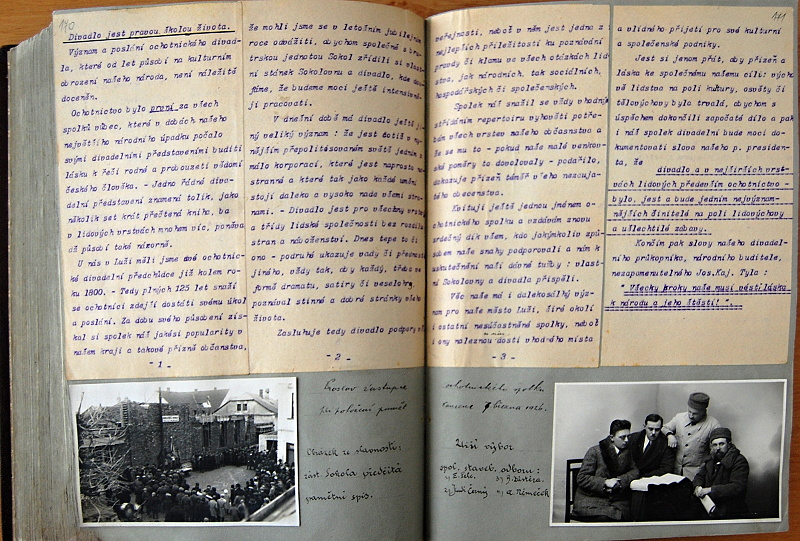 170
Divadlo jest pravou školou života.
Význam a poslání ochotnického divad-
la, které od let působí na kulturním
obrození našeho národa, není náležitě
doceněn.
Ochotnictvo bylo první za všech
spolků vůbec, které v dobách našeho
největšího národního úpadku počalo
svými divadelními představeními buditi
lásku k řeči rodné a probouzeti vědomí
českého člověka. - Jedno řádné diva-
delní představení znamená tolik, jako
několik set krát přečtená kniha, ba
v lidových vrstvách mnohem víc, poněva
dž působí také názorně.
U nás v Luži měli jsme své ochotnic-
ké divadelní předchůdce již kolem ro-
ku 1800. - Tedy plných 125 let snaží
se ochotníci zdejší dostáti svému úkolu
a poslání. Za dobu svého působení zís-
kal si spolek náš jakési popularity v
našem kraji a takové přízně občanstva,
- 1 -
že mohli jsme se v letošním jubilejním
roce odvážiti, abychom společně s bra-
trskou jednotou Sokol zřídili si vlast-
ní stánek Sokolovnu a divadlo, kde
fáme, že budeme moci ještě intensivně-
ji pracovati.
V dnešní době má divadlo ještě ji-
ný veliký význam: že jest totiž v ny-
nějším přepolitisovaném světě jedním z
málo korporací, které jest naprosto ne-
stranné a které tak jako každé umění
stojí daleko a vysoko nade všemi stra-
nami. - Divadlo jest pro všechny vrstvy
a třídy lidské společnosti bez rozdílu
stran a náboženství. Dnes tepe to či
ono - podruhé ukazuje vady či přednosti
jiného, vždy tak, aby každý, třeba ve
formě dramatu, satiry či veselohry,
poznával stinné a dobré stránky všeho
života.
Zasluhuje tedy divadlo podpory
- 2 -
veřejnosti, neboť v něm jest jedna z
nejlepších příležitostí ku poznávání
pravdy či klamu ve všech otázkách lid-
stva, jak národních, tak sociálních,
hospodářských či společenských.
Spolek náš snažil se vždy vhodným
střídáním repertoiru vyhověti potře-
bám všech vrstev našeho občanstva a
že se mu to - pokud naše malé venkov-
ské poměry to dovolovaly - podařilo,
dokazuje přízeň téměř všeho nezauja-
tého obecenstva.
Kvituji ještě jednou jménem o-
chotnického spolku a vzdávám znovu
srdečný dík všem, kdo jakýmkoliv způ-
sobem naše snahy podporovali a nám k
uskutečnění naší dávné tužby: vlast-
ní Sokolovny a divadla přispěli.
Věc naše má i dalekosáhlý význ-
nam pro naše město Luži, širé okolí
i ostatní nesúčastněné spolky, neboť
i ony naleznou dosti vhodného místa
- 3 -
171
a vlídného přijetí pro své kulturní
a společenské podniky.
Jest si jenom přát, aby přízeň a
láska ke společnému našemu cíli: výcho-
vě lidstva na poli kultury, osvěty či
tělovýchovy byla trvalá, abychom s
úspěchem dokončili započaté dílo a pak
i náš spolek divadelní bude moci do-
kumentovati slova našeho p. presiden-
ta, že
divadlo a v nejširších vrst-
vách lidových především ochotnictvo -
bylo, jest a bude jedním nejvýznam-
nějších činitelů na poli lidovýchovy
a ušlechtilé zábavy.
Končím pak slovy našeho divadel-
ního průkopníka, národního buditele,
nezapomenutelného Jos. Kaj. Tyla:
" Všecky kroky naše musí vésti láska
k národu a jeho štěstí! ".
Proslov zástupce ochotnického spolku
při položení pamět. kamene 7. března 1926.
Obrázek ze slavnosti:
zást. Sokola předčítá
pamětní spis.
Užší výbor
spol. staveb. odboru: